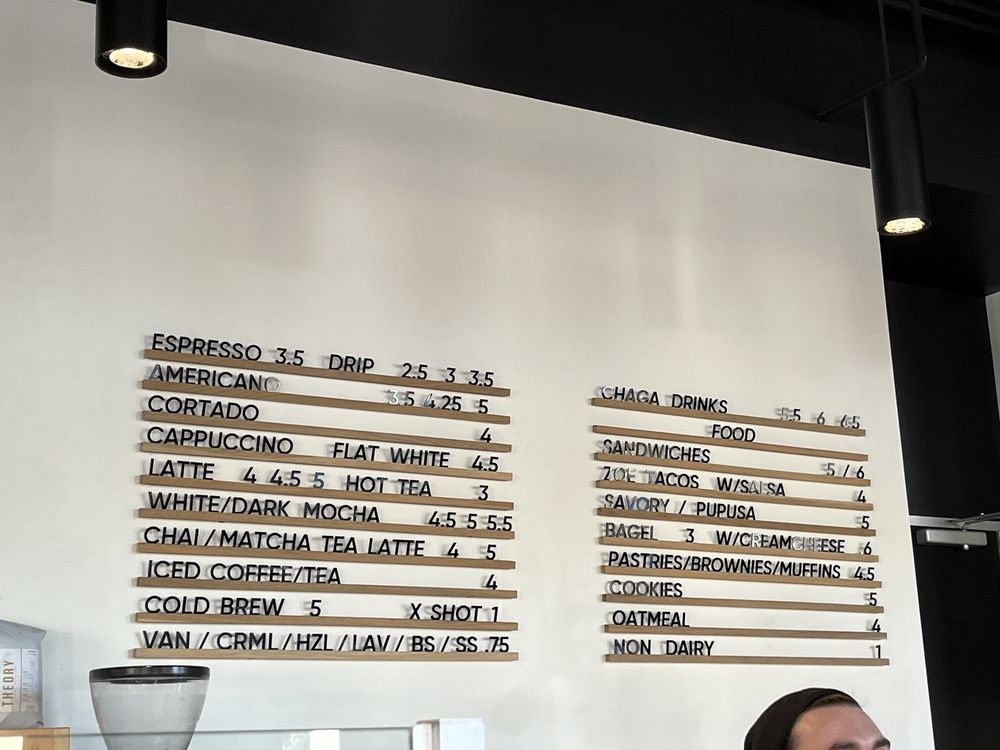 ESPRESSO 3.5 DRIP 2.5 3 3.5
AMERICANO 3.5 4.25 5
CORTADO 4
CAPPUCCINO FLAT WHITE 4.5
LATTE 4 4.5 5 HOT TEA 3
WHITE/DARK MOCHA 4.5 5 5.5
CHAI/MATCHA TEA LATTE 4 5
ICED COFFEE/TEA 4
COLD BREW 5 X SHOT 1
VAN/CRML/HZL/LAV/BS/SS .75
CHAGA DRINKS 5.5 6 6.5
FOOD
SANDWICHES 5/6
ZOE TACOS W/SALSA 4
SAVORY / PUPUSA 5
BAGEL 3 W/CREAMCHEESE 6
PASTRIES/BROWNIES/MUFFINS 4.5
COOKIES 5
OATMEAL 4
NON DAIRY 1
THEORY